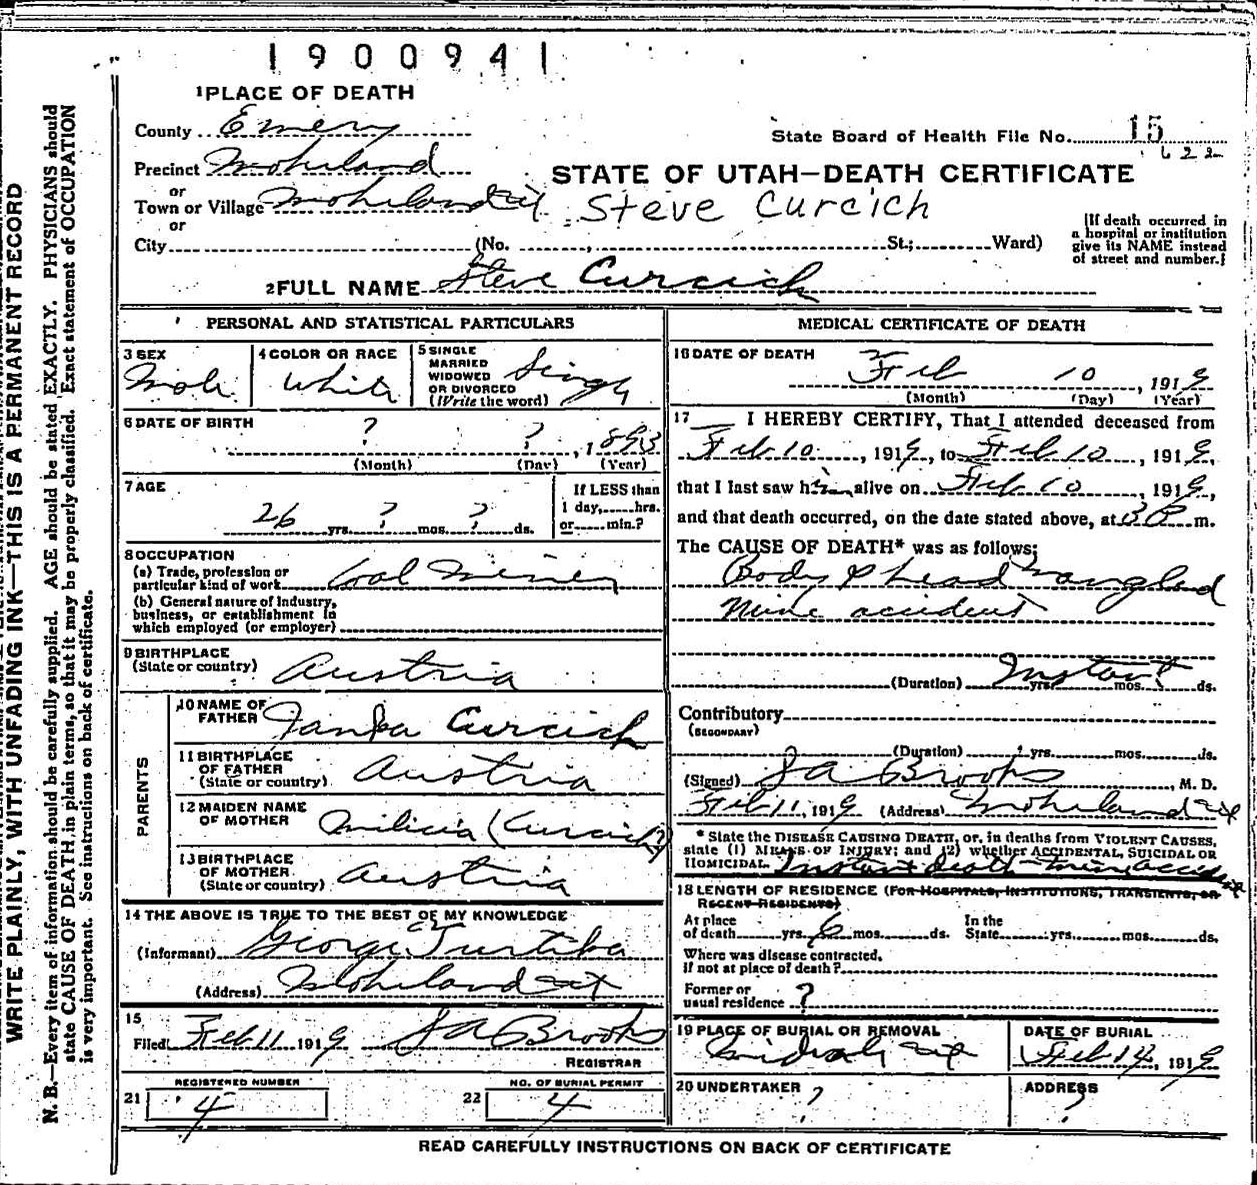 1900941
1 PLACE OF DEATH
County Emery
State Board of Health File No. 15
622
Precinct Mohrland
STATE OF UTAH—DEATH CERTIFICATE
or
Town or Village Mohrland Ut
Steve Curcich
or
City (No. , St.; Ward)
[If death occurred in
a hospital or institution
give its NAME instead
of street and number.]
2 FULL NAME Steve Curcich
WRITE PLAINLY, WITH UNFADING INK—THIS IS A PERMANENT RECORD
N. B.—Every item of information should be carefully supplied. AGE should be stated EXACTLY. PHYSICIANS should
state CAUSE OF DEATH in plain terms, so that it may be properly classified. Exact statement of OCCUPATION
is very important. See instructions on back of certificate.
PERSONAL AND STATISTICAL PARTICULARS
3 SEX
Male
4 COLOR OR RACE
White
5 SINGLE
MARRIED
WIDOWED
OR DIVORCED
(Write the word)
Single
6 DATE OF BIRTH
? ? , 1893
(Month) (Day) (Year)
7 AGE
26 yrs. ? mos. ? ds.
If LESS than
1 day, hrs.
or min.?
8 OCCUPATION
(a) Trade, profession or
particular kind of work Coal Miner
(b) General nature of industry,
business, or establishment in
which employed (or employer)
9 BIRTHPLACE
(State or country) Austria
PARENTS
10 NAME OF
FATHER Curcich
11 BIRTHPLACE
OF FATHER
(State or country) Austria
12 MAIDEN NAME
OF MOTHER Milicia (Curcich?)
13 BIRTHPLACE
OF MOTHER
(State or country) Austria
14 THE ABOVE IS TRUE TO THE BEST OF MY KNOWLEDGE
(Informant) George
(Address) Mohrland Ut
15
Filed Feb 11 1919 J A Brooks
REGISTRAR
REGISTERED NUMBER
21 4
NO. OF BURIAL PERMIT
22 4
MEDICAL CERTIFICATE OF DEATH
16 DATE OF DEATH
Feb 10 , 1919
(Month) (Day) (Year)
17 I HEREBY CERTIFY, That I attended deceased from
Feb 10 , 1919, to Feb 10 , 1919,
that I last saw him alive on Feb 10 , 1919,
and that death occurred, on the date stated above, at 3 P m.
The CAUSE OF DEATH* was as follows:
Body & head mangled
Mine accident
(Duration) Instant yrs. mos. ds.
Contributory
(SECONDARY)
(Duration) yrs. mos. ds.
(Signed) J A Brooks , M. D.
Feb 11, 1919 (Address) Mohrland Ut
* State the DISEASE CAUSING DEATH, or, in deaths from VIOLENT CAUSES,
state (1) MEANS OF INJURY; and (2) whether ACCIDENTAL, SUICIDAL OR
HOMICIDAL. Instant death mine accident
18 LENGTH OF RESIDENCE (FOR HOSPITALS, INSTITUTIONS, TRANSIENTS, OR
RECENT RESIDENTS)
At place
of death yrs. 6 mos. ds.
In the
State yrs. mos. ds.
Where was disease contracted,
if not at place of death?
Former or
usual residence ?
19 PLACE OF BURIAL OR REMOVAL
DATE OF BURIAL
Feb 14, 1919
20 UNDERTAKER
?
ADDRESS
?
READ CAREFULLY INSTRUCTIONS ON BACK OF CERTIFICATE